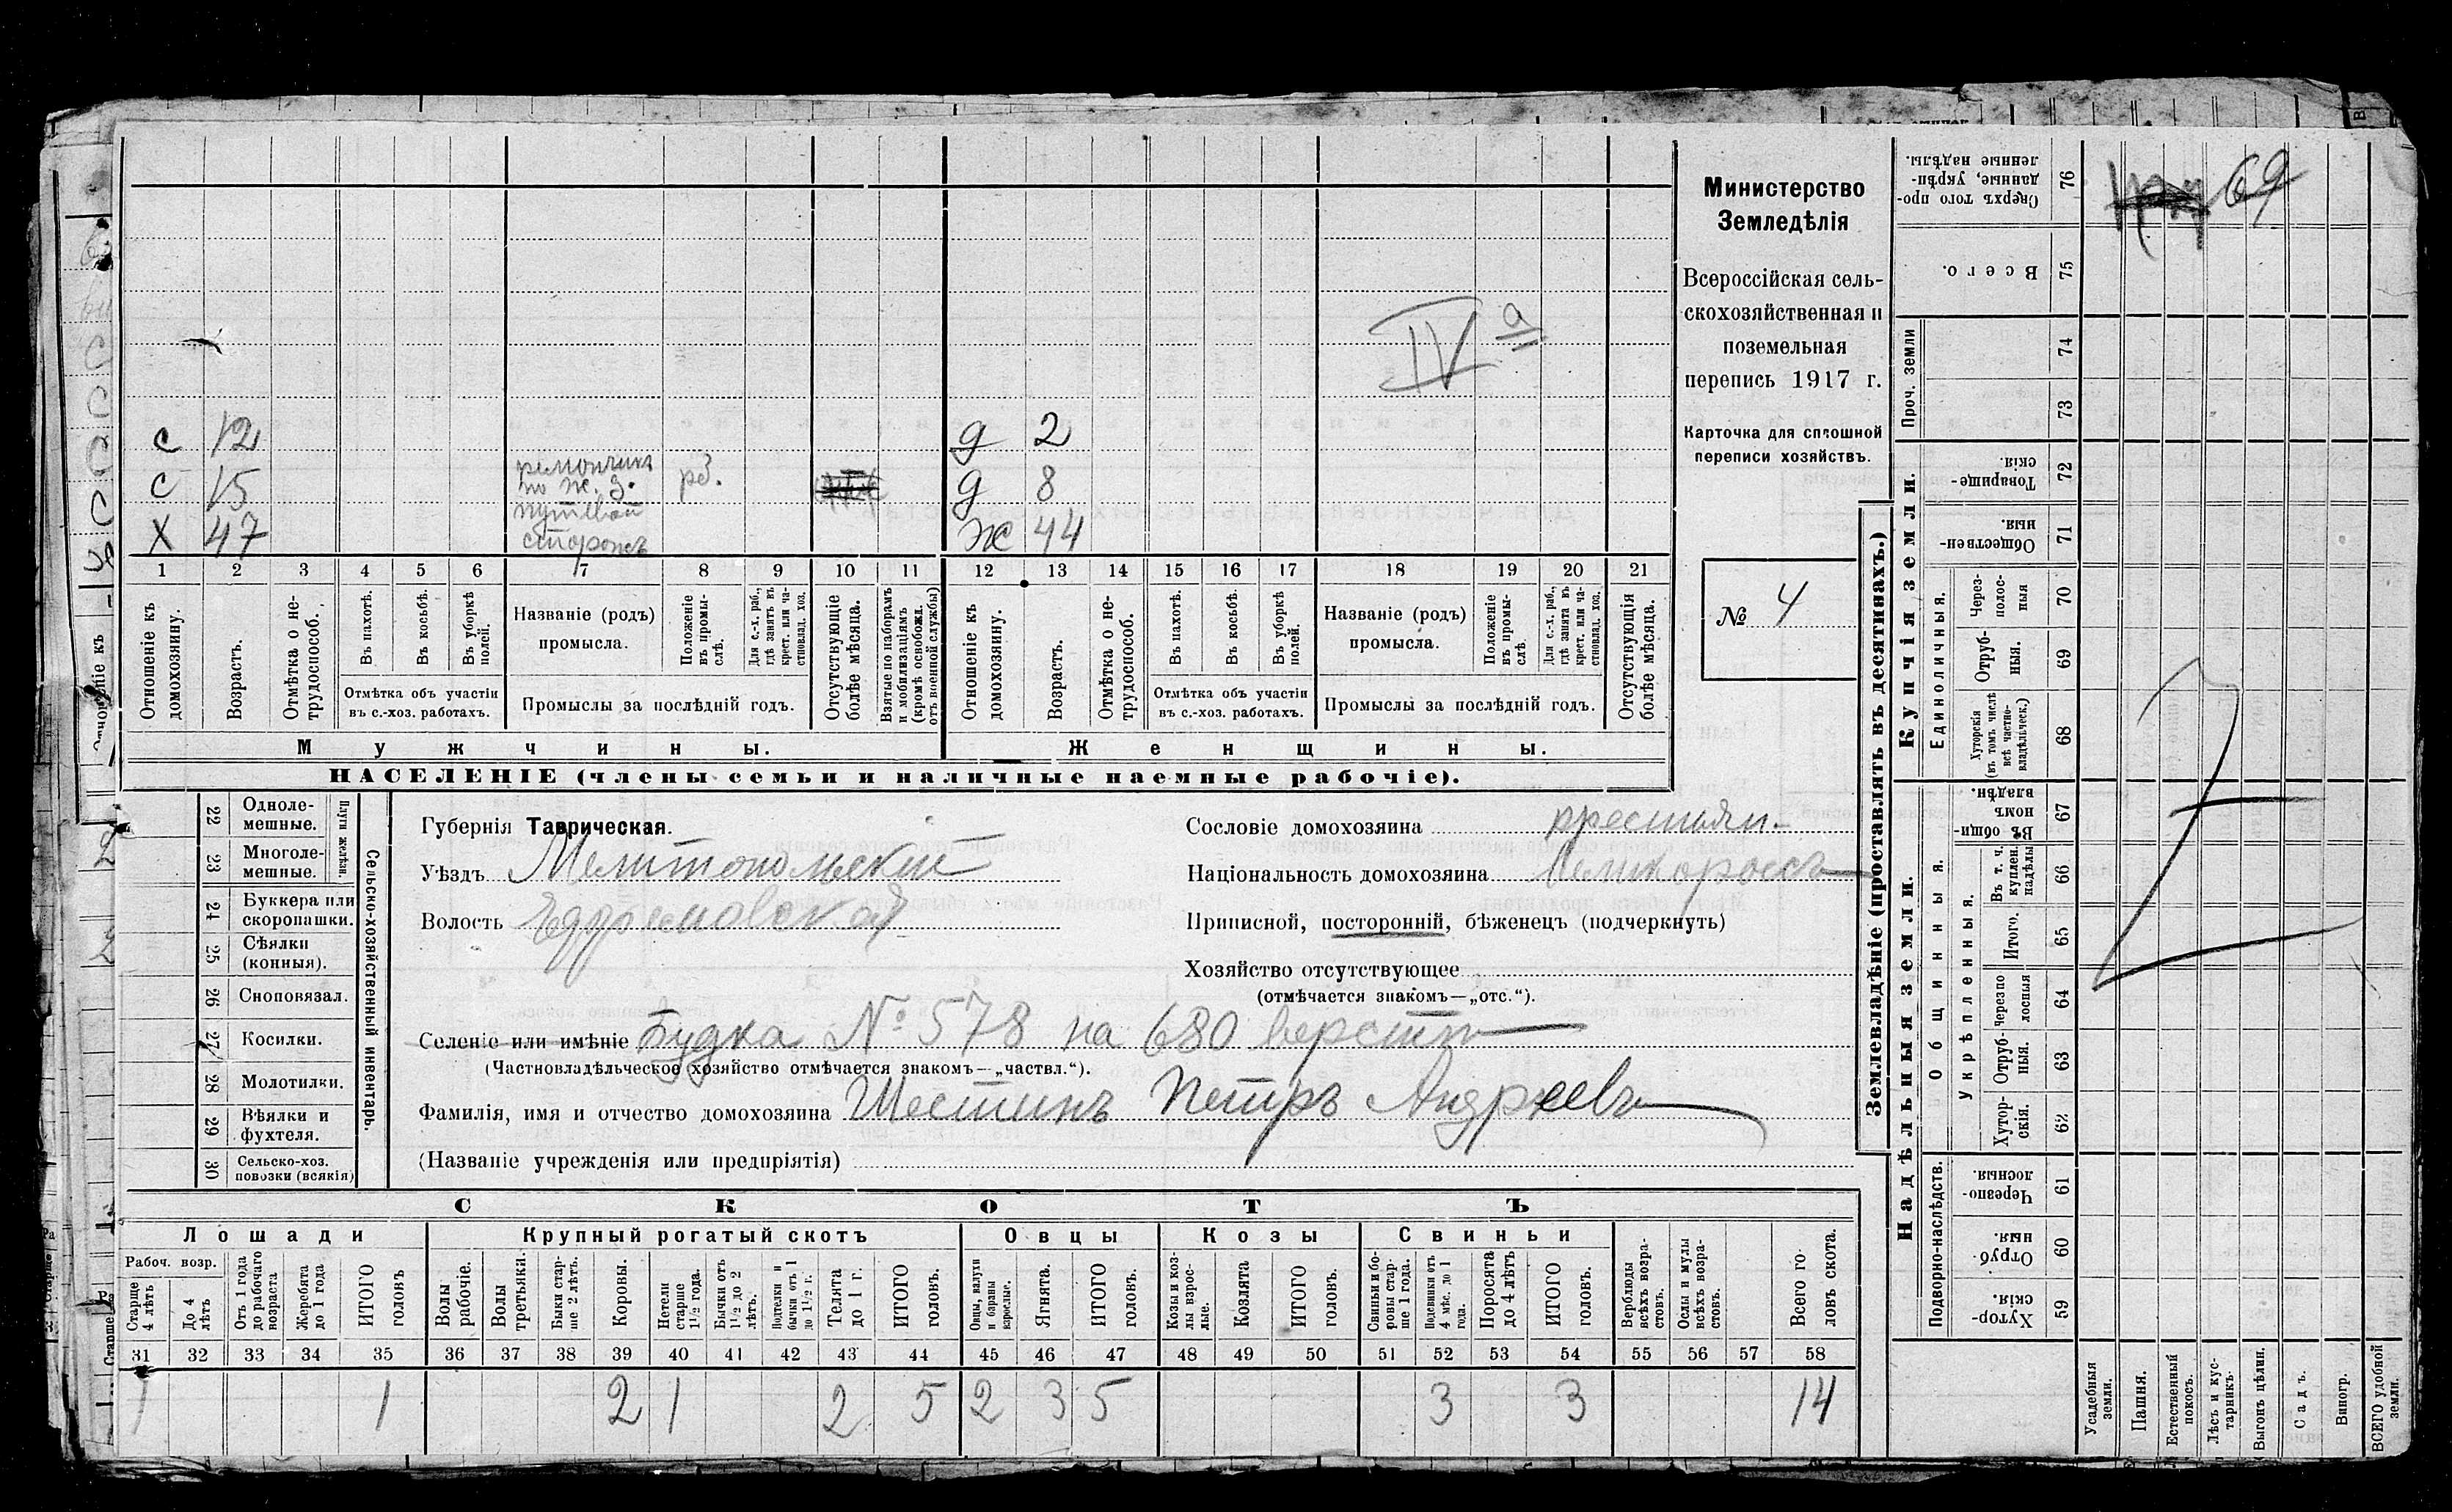 Министерство
Земледѣлія
Всероссійская сель-
скохозяйственная и
поземельная
перепись 1917 г.
Карточка для сплошной
переписи хозяйствъ.
№ 4
IV а
69
с 12 д 2
с 15 ремонтник по ж. д. рб. д 8
х 47 путевой сторожъ ж 44
1 2 3 4 5 6 7 8 9 10 11 12 13 14 15 16 17 18 19 20 21
Отношеніе къ домохозяину.
Возрастъ.
Отмѣтка о не-трудоспособ.
Въ пахотѣ.
Въ косьбѣ.
Въ уборкѣ полей.
Отмѣтка объ участіи въ с.-хоз. работахъ.
Названіе (родъ) промысла.
Положеніе въ промы-слѣ.
Для с.-х. раб., гдѣ занятъ въ крест. или ча-стновлад. хоз.
Промыслы за послѣдній годъ.
Отсутствующіе болѣе мѣсяца.
Взятые по наборамъ и мобилизаціямъ (кромѣ освобожд. отъ военной службы)
Отношеніе къ домохозяину.
Возрастъ.
Отмѣтка о не-трудоспособ.
Въ пахотѣ.
Въ косьбѣ.
Въ уборкѣ полей.
Отмѣтка объ участіи въ с.-хоз. работахъ.
Названіе (родъ) промысла.
Положеніе въ промы-слѣ
Для с.-х. раб., гдѣ занята въ крест. или ча-стновлад. хоз.
Промыслы за послѣдній годъ.
Отсутствующія болѣе мѣсяца.
Мужчины. Женщины.
НАСЕЛЕНІЕ (члены семьи и наличные наемные рабочіе).
Сельско-хозяйственный инвентарь.
Плуги желѣзн.
22 Одноле-мешные.
23 Многоле-мешные.
24 Буккера или скоропашки.
25 Сѣялки (конныя).
26 Сноповязал.
27 Косилки.
28 Молотилки.
29 Вѣялки и фухтеля.
30 Сельско-хоз. повозки (всякія)
Губернія Таврическая.
Уѣздъ Мелитопольскій
Волость Ефремовская
Сословіе домохозяина крестьян.
Національность домохозяина великороссъ
Приписной, посторонній, бѣженецъ (подчеркнуть)
Хозяйство отсутствующее
(отмѣчается знакомъ—„отс.“).
Селеніе или имѣніе Будка № 578 на 680 верстѣ
(Частновладѣльческое хозяйство отмѣчается знакомъ—„частвл.“).
Фамилія, имя и отчество домохозяина Шестинъ Петръ Андреевъ
(Названіе учрежденія или предпріятія)
СКОТЪ
Лошади Крупный рогатый скотъ Овцы Козы Свиньи
Рабоч. возр.
Старше 4 лѣтъ
До 4 лѣтъ
Отъ 1 года до рабочаго возраста
Жеребята до 1 года
ИТОГО головъ
Волы рабочіе.
Волы третьяки.
Быки стар-ше 2 лѣтъ.
Коровы.
Нетели старше 1½ года.
Бычки отъ 1½ до 2 лѣтъ.
Подтелки и бычки отъ 1 до 1½ г.
Телята до 1 г.
ИТОГО головъ.
Овцы, валухи и бараны взрослые.
Ягнята.
ИТОГО головъ.
Козы и коз-лы взрос-лые.
Козлята
ИТОГО головъ.
Свиньи и бо-ровы стар-ше 1 года.
Подсвинки отъ 4 мѣс. до 1 года.
Поросята до 4 лѣтъ
ИТОГО головъ.
Верблюды всѣхъ возра-стовъ.
Ослы и мулы всѣхъ возра-стовъ.
Всего го-ловъ скота.
31 32 33 34 35 36 37 38 39 40 41 42 43 44 45 46 47 48 49 50 51 52 53 54 55 56 57 58
1 1 2 1 2 5 2 3 5 3 3 14
Землевладѣніе (проставлять въ десятинахъ.)
Купчія земли.
Надѣльныя земли.
Сверхъ того про-данные, укрѣп-ленные надѣлы. 76
Всего. 75
Проч. земли 74 73
Товарище-скія. 72
Обществен-ныя. 71
Единоличныя.
Через-полос-ныя 70
Отруб-ныя. 69
Хуторскія (въ томъ числѣ всѣ частно-владѣльческ.) 68
Общинныя.
Въ общин-номъ владѣн. 67
Укрѣпленныя.
Въ т. ч. куплен. надѣлы 66
Итого. 65
Черезпо-лосныя 64
Отруб-ныя. 63
Хутор-скія. 62
Подворно-наслѣдств.
Черезпо-лосныя 61
Отруб-ныя. 60
Хутор-скія. 59
Усадебныя земли.
Пашня.
Естественный покосъ.
Лѣсъ и кус-тарникъ.
Выгонъ цѣлин.
Садъ.
Виногр.
ВСЕГО удобной земли.